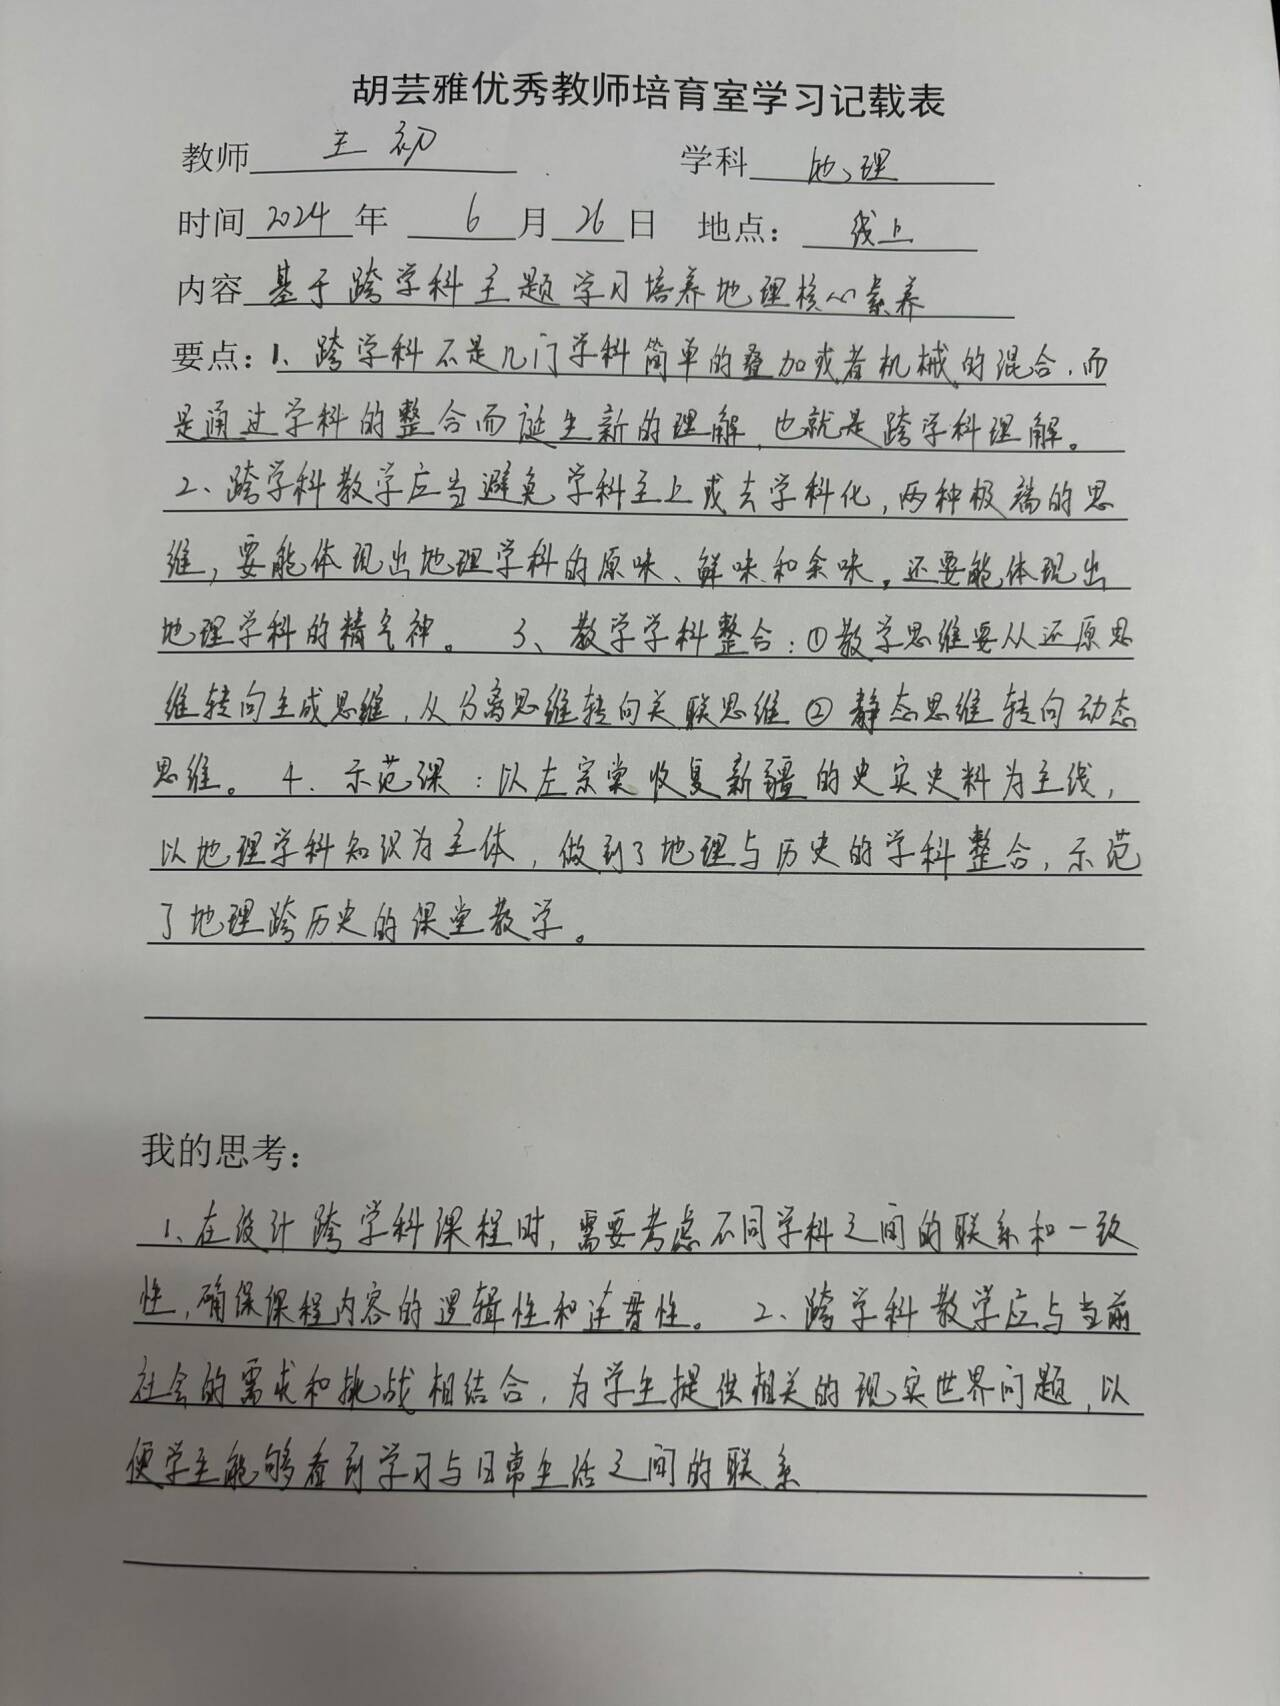 胡芸雅优秀教师培育室学习记载表
教师 王初 学科 地理
时间 2024 年 6 月 26 日 地点：线上
内容 基于跨学科主题学习培养地理核心素养
要点：1、跨学科不是几门学科简单的叠加或者机械的混合，而
是通过学科的整合而诞生新的理解，也就是跨学科理解。
2、跨学科教学应当避免学科至上或去学科化，两种极端的思
维，要能体现出地理学科的原味、鲜味和余味。还要能体现出
地理学科的精气神。 3、教学学科整合：①教学思维要从还原思
维转向生成思维，从分离思维转向关联思维 ② 静态思维转向动态
思维。 4．示范课：以左宗棠收复新疆的史实史料为主线，
以地理学科知识为主体，做到了地理与历史的学科整合，示范
了地理跨历史的课堂教学。
我的思考：
1、在设计跨学科课程时，需要考虑不同学科之间的联系和一致
性，确保课程内容的逻辑性和连贯性。 2、跨学科教学应与当前
社会的需求和挑战相结合，为学生提供相关的现实世界问题，以
便学生能够看到学习与日常生活之间的联系